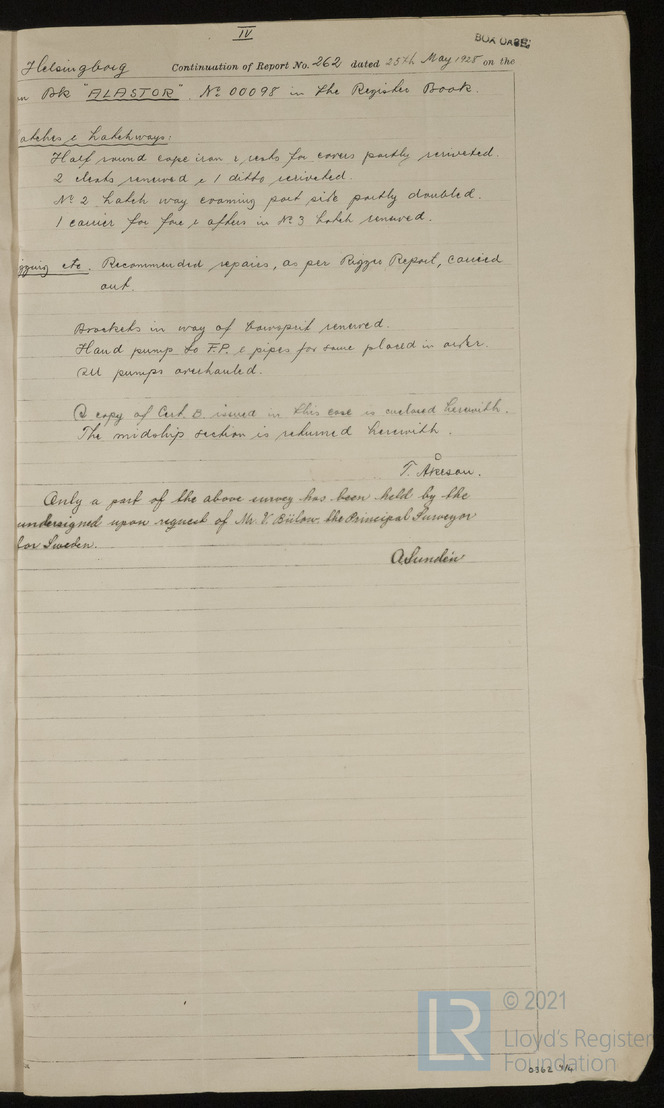 IV
BOX CASE
Helsingborg Continuation of Report No. 262 dated 25th May 1928 on the
Bk "ALASTOR". No 00098 in the Register Book.
atches & hatchways:
Half round cope iron & rests for covers partly reriveted.
2 cleats renewed & 1 ditto reriveted.
No 2 hatch way coaming port side partly doubled.
1 carrier for fore & afters in No 3 hatch renewed.
gging etc. Recommended repairs, as per Rigger Report, carried
out.
Brackets in way of bowsprit renewed.
Hand pump to F.P. & pipes for same placed in order.
All pumps overhauled.
A copy of Cert. B. issued in this case is enclosed herewith.
The midship section is returned herewith.
T. Åkeson.
Only a part of the above survey has been held by the
undersigned upon request of Mr. V. Bülow, the Principal Surveyor
for Sweden.
A Sundén
© 2021
LR
Lloyd's Register
Foundation
0362 4/4